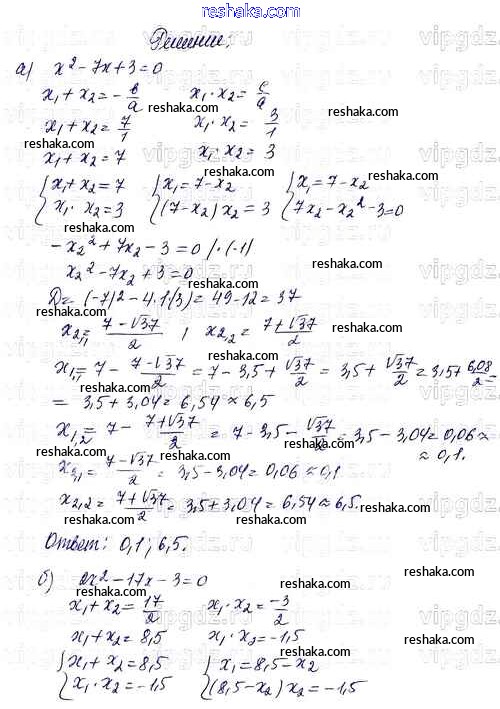 Решение:
а) x² - 7x + 3 = 0
x₁ + x₂ = - в/а    x₁ · x₂ = c/a
x₁ + x₂ = 7/1    x₁ · x₂ = 3/1
x₁ + x₂ = 7    x₁ · x₂ = 3
{ x₁ + x₂ = 7    { x₁ = 7 - x₂    { x₁ = 7 - x₂
{ x₁ · x₂ = 3    { (7 - x₂) x₂ = 3    { 7x₂ - x₂² - 3 = 0
- x₂² + 7x₂ - 3 = 0 / · (-1)
x₂² - 7x₂ + 3 = 0
D = (-7)² - 4 · 1 (3) = 49 - 12 = 37
x₂,₁ = (7 - √37)/2 ; x₂,₂ = (7 + √37)/2
x₁,₁ = 7 - (7 - √37)/2 = 7 - 3,5 + √37/2 = 3,5 + √37/2 = 3,5 + 6,08/2 =
= 3,5 + 3,04 = 6,54 ≈ 6,5
x₁,₂ = 7 - (7 + √37)/2 = 7 - 3,5 - √37/2 = 3,5 - 3,04 = 0,06 ≈
≈ 0,1.
x₂,₁ = (7 - √37)/2 = 3,5 - 3,04 = 0,06 ≈ 0,1
x₂,₂ = (7 + √37)/2 = 3,5 + 3,04 = 6,54 ≈ 6,5.
Ответ: 0,1; 6,5.
б) 2x² - 17x - 3 = 0
x₁ + x₂ = 17/2    x₁ · x₂ = -3/2
x₁ + x₂ = 8,5    x₁ · x₂ = -1,5
{ x₁ + x₂ = 8,5    { x₁ = 8,5 - x₂
{ x₁ · x₂ = -1,5    { (8,5 - x₂) x₂ = -1,5
reshaka.com
vipgdz.ru